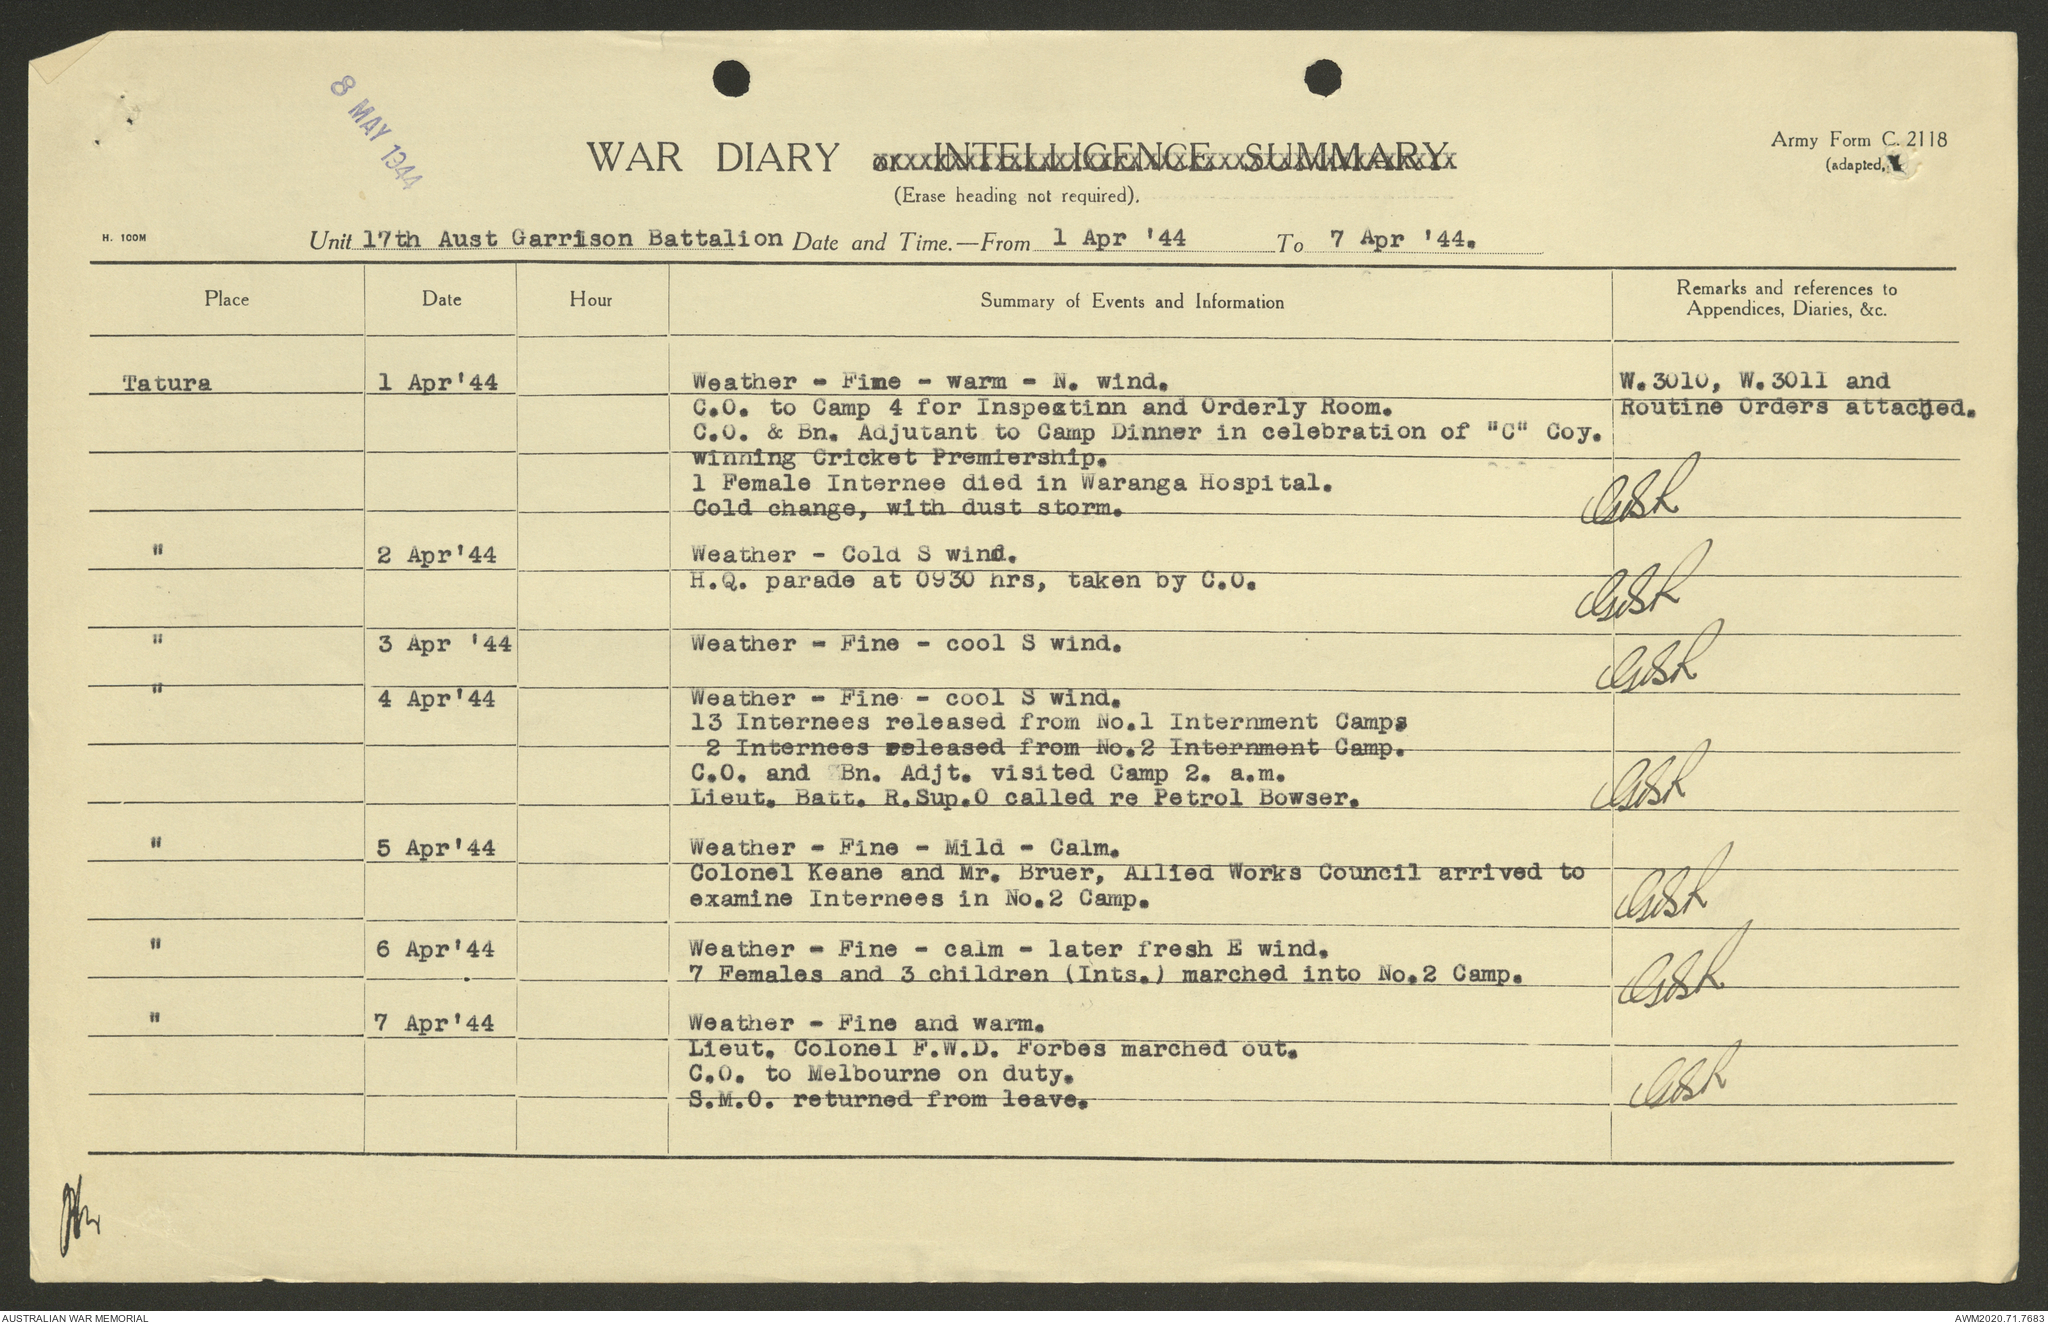 8 MAY 1944
WAR DIARY or INTELLIGENCE SUMMARY
(Erase heading not required).
Army Form C. 2118
(adapted)
H. 100M
Unit 17th Aust Garrison Battalion Date and Time.—From 1 Apr '44 To 7 Apr '44.
Place Date Hour Summary of Events and Information Remarks and references to
Appendices, Diaries, &c.
Tatura 1 Apr'44 Weather - Fine - warm - N. wind. W.3010, W.3011 and
C.O. to Camp 4 for Inspectinn and Orderly Room. Routine Orders attached.
C.O. & Bn. Adjutant to Camp Dinner in celebration of "C" Coy.
winning Cricket Premiership.
1 Female Internee died in Waranga Hospital.
Cold change, with dust storm.
" 2 Apr'44 Weather - Cold S wind.
H.Q. parade at 0930 hrs, taken by C.O.
" 3 Apr '44 Weather - Fine - cool S wind.
" 4 Apr'44 Weather - Fine - cool S wind.
13 Internees released from No.1 Internment Camps
2 Internees released from No.2 Internment Camp.
C.O. and Bn. Adjt. visited Camp 2. a.m.
Lieut. Batt. R.Sup.O called re Petrol Bowser.
" 5 Apr'44 Weather - Fine - Mild - Calm.
Colonel Keane and Mr. Bruer, Allied Works Council arrived to
examine Internees in No.2 Camp.
" 6 Apr'44 Weather - Fine - calm - later fresh E wind.
7 Females and 3 children (Ints.) marched into No.2 Camp.
" 7 Apr'44 Weather - Fine and warm.
Lieut. Colonel F.W.D. Forbes marched out.
C.O. to Melbourne on duty.
S.M.O. returned from leave.
AUSTRALIAN WAR MEMORIAL
AWM2020.71.7683